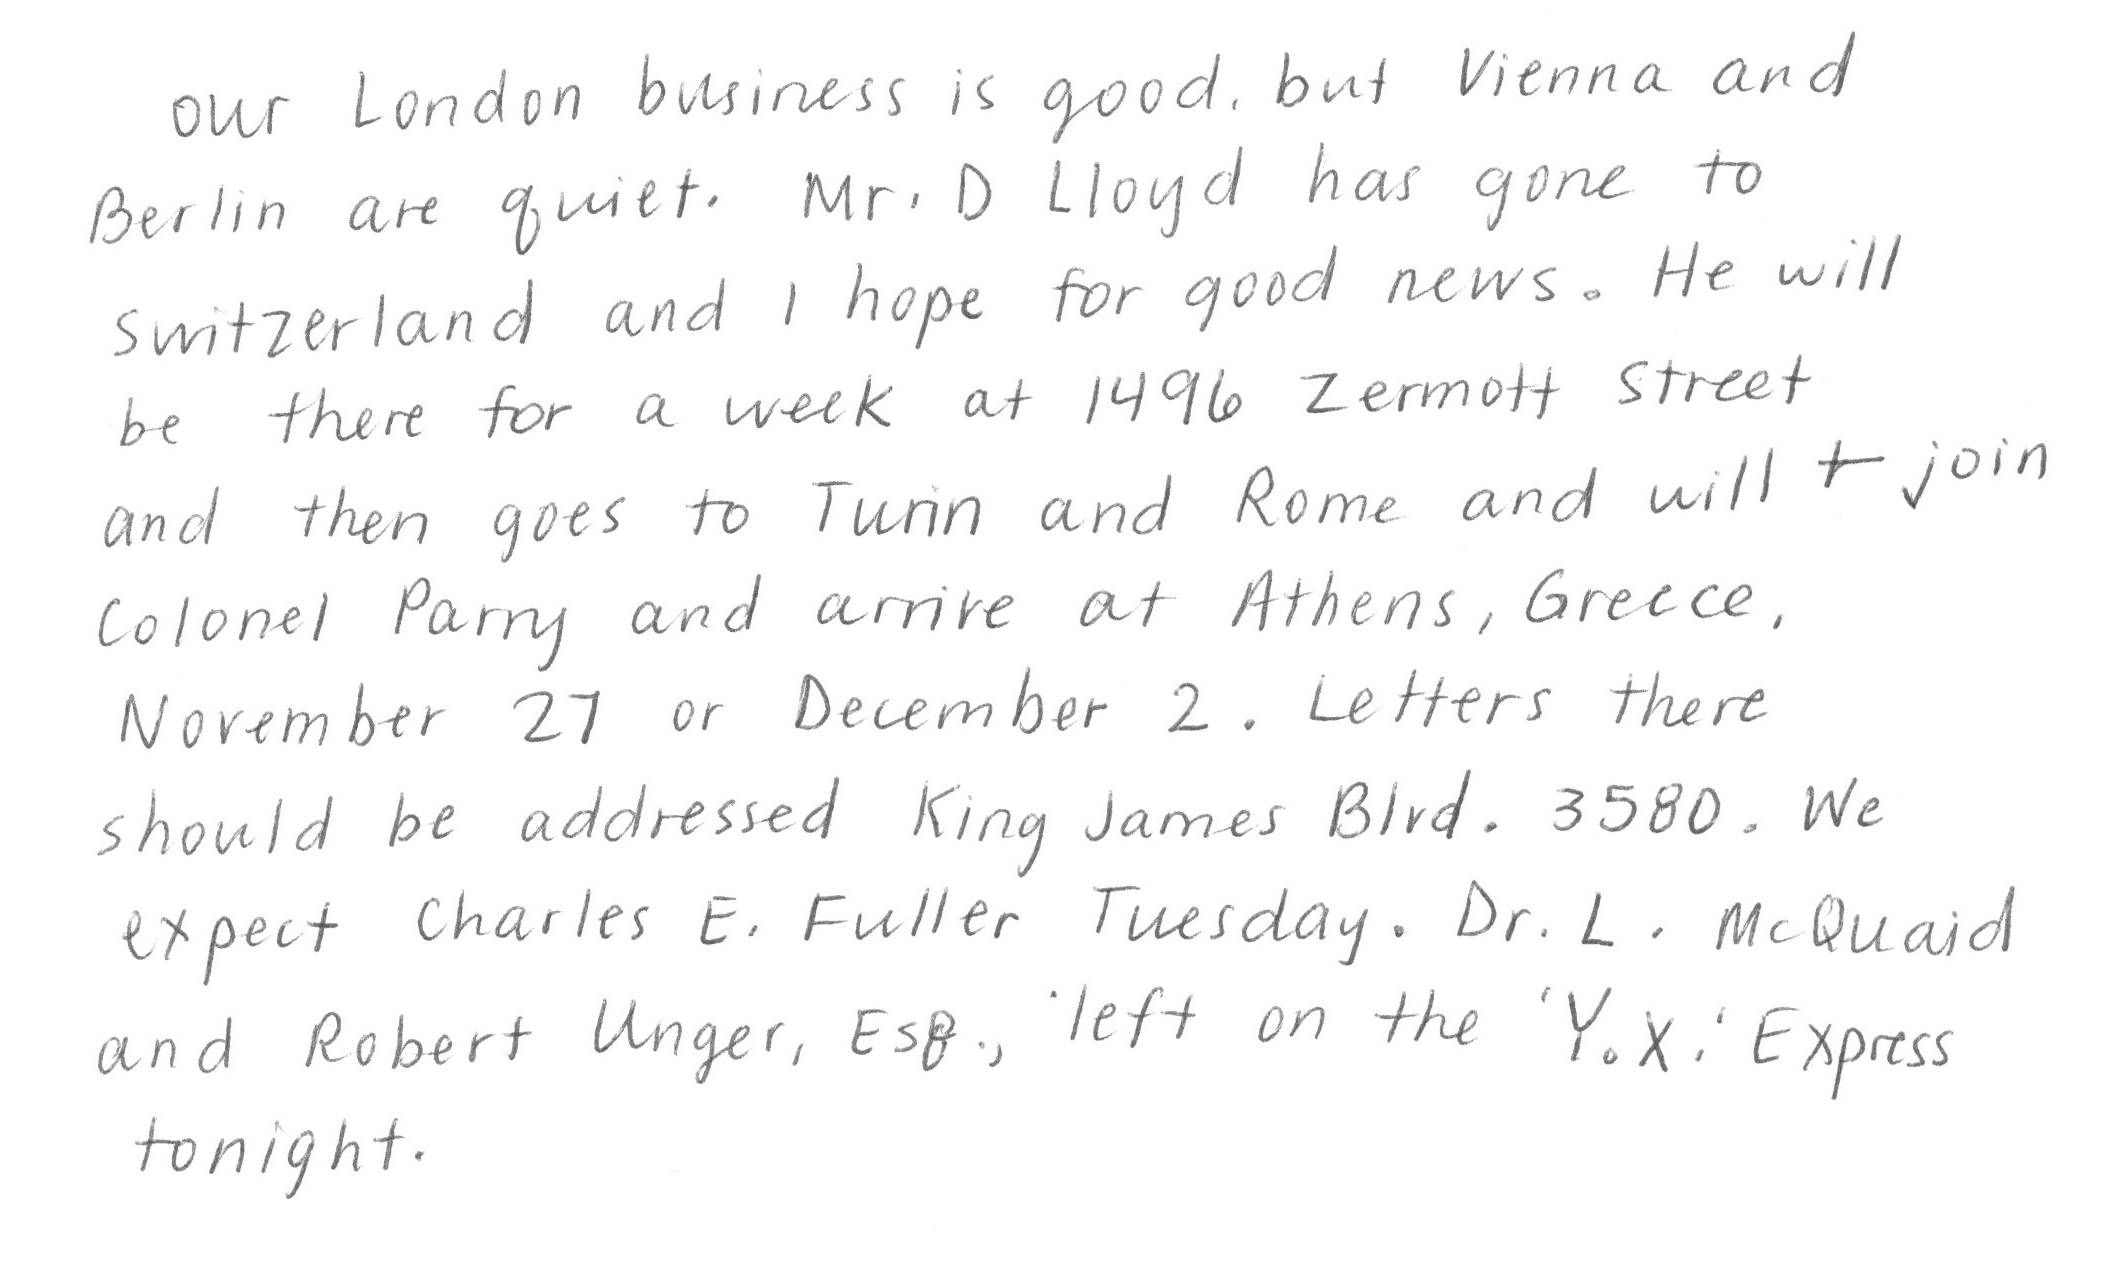 our London business is good. but Vienna and
Berlin are quiet. Mr. D Lloyd has gone to
Switzerland and I hope for good news. He will
be there for a week at 1496 Zermott Street
and then goes to Turin and Rome and will join
Colonel Parry and arrive at Athens, Greece,
November 27 or December 2. Letters there
should be addressed King James Blvd. 3580. We
expect Charles E. Fuller Tuesday. Dr. L. McQuaid
and Robert Unger, Esq., left on the 'Y.X.' Express
tonight.